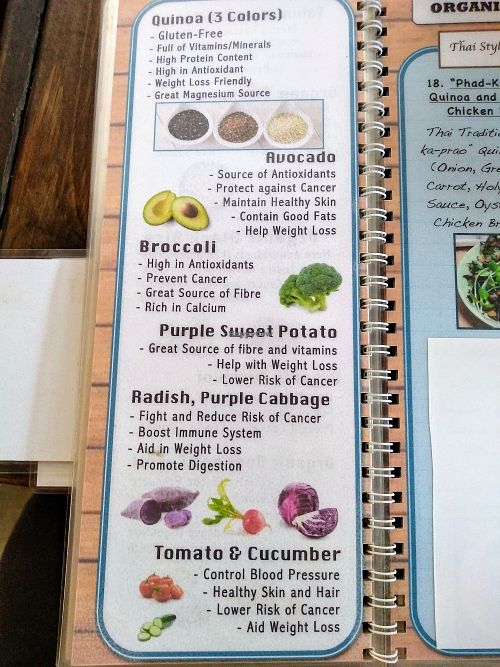 Quinoa (3 Colors)
- Gluten-Free
- Full of Vitamins/Minerals
- High Protein Content
- High in Antioxidant
- Weight Loss Friendly
- Great Magnesium Source
Avocado
- Source of Antioxidants
- Protect against Cancer
- Maintain Healthy Skin
- Contain Good Fats
- Help Weight Loss
Broccoli
- High in Antioxidants
- Prevent Cancer
- Great Source of Fibre
- Rich in Calcium
Purple Sweet Potato
- Great Source of fibre and vitamins
- Help with Weight Loss
- Lower Risk of Cancer
Radish, Purple Cabbage
- Fight and Reduce Risk of Cancer
- Boost Immune System
- Aid in Weight Loss
- Promote Digestion
Tomato & Cucumber
- Control Blood Pressure
- Healthy Skin and Hair
- Lower Risk of Cancer
- Aid Weight Loss
ORGANI
Thai Sty
18. "Phad-K
Quinoa and
Chicken
Thai Traditi
ka-prao" Qui
(Onion, Gre
Carrot, Hol
Sauce, Oys
Chicken Br